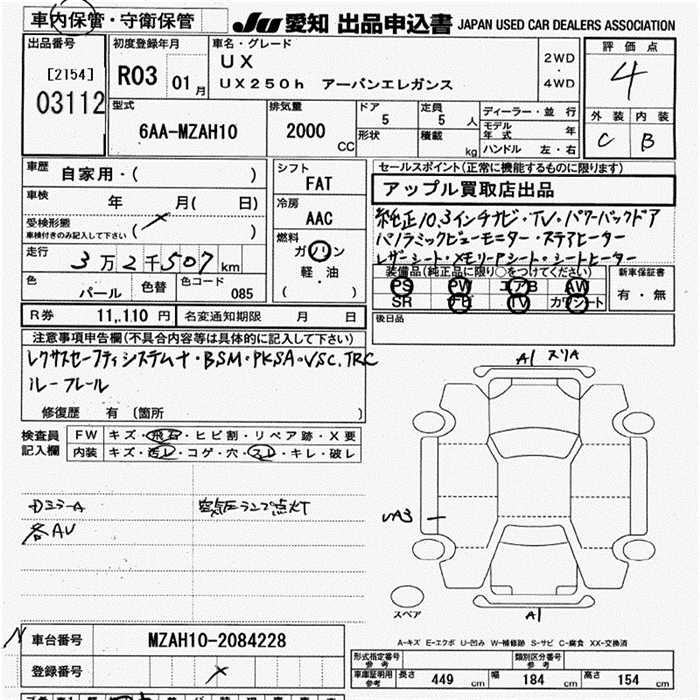 車内保管・守衛保管
JU 愛知 出品申込書 JAPAN USED CAR DEALERS ASSOCIATION
出品番号
[2154]
03112
初度登録年月
R03 01月
車名・グレード
UX
UX250h アーバンエレガンス
2WD
・
4WD
評価点
4
外装 内装
C B
型式
6AA-MZAH10
排気量
2000 CC
ドア 5
定員 5人
形状
積載 kg
ディーラー・並行
モデル年式 年
ハンドル 左・右
車歴 自家用・( )
車検 年 月( 日)
受検形態
車検付きのみ記入して下さい
走行 3万2千507km
色 パール
色替
色コード 085
シフト
FAT
冷房
AAC
燃料
ガソリン
軽・油
( )
セールスポイント(正常に機能するものに限ります)
アップル買取店出品
純正10.3インチナビ・TV・パワーバックドア
パノラミックビューモニター・ステアヒーター
レザーシート・メモリーPシート・シートヒーター
装備品(純正品に限り○をつけてください)
PS PW エアB AW
SR TV カワシート
新車保証書
有・無
後日品
R券 11,110円
名変通知期限 月 日
注意事項申告欄(不具合内容等は具体的に記入して下さい)
レクサスセーフティシステム+・BSM・PKSA・VSC.TRC
ルーフレール
修復歴 有 (箇所 )
検査員記入欄
FW キズ・飛石・ヒビ割・リペア跡・X要
内装 キズ・汚レ・コゲ・穴・スレ・キレ・破レ
Dミラ-A
空気圧ランプ点灯
各AU
A1 スリA
A3
A1
スペア
A-キズ E-エクボ U-凹み W-補修跡 S-サビ C-腐食 XX-交換済
車台番号 MZAH10-2084228
登録番号
形式指定番号 参考
類別区分番号 参考
車庫証明用参考 長さ 449cm 幅 184cm 高さ 154cm